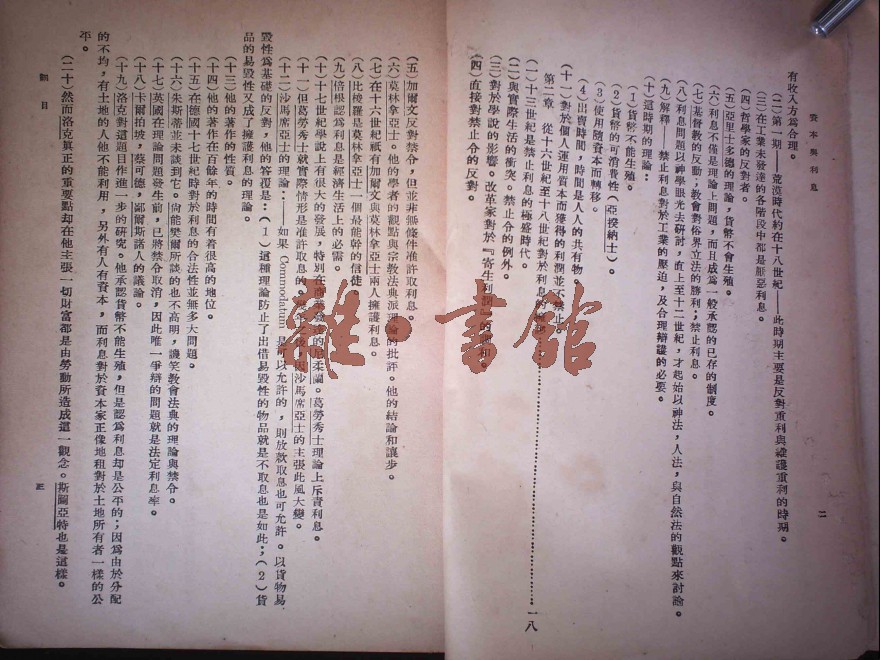 資本與利息
二
有收入方為合理。
(二)第一期——荒漠時代約在十八世紀——此時期主要是反對重利與維護重利的時期。
(三)在工業未發達的各階段中都是厭惡利息。
(四)哲學家的反對者。
(五)亞里士多德的理論,貨幣不會生殖。
(六)利息不僅是理論上問題,而且成為一般承認的已存的制度。
(七)基督教的反動;教會對俗界立法的勝利;禁止利息。
(八)利息問題以神學眼光去研討,直上至十二世紀,才起始以神法,人法,與自然法的觀點來討論。
(九)解釋——禁止利息對於工業的壓迫,及合理辯護的必要。
(十)這時期的理論:
(1)貨幣不能生殖。
(2)貨幣的可消費性(亞揆納士)。
(3)使用隨資本而轉移。
(4)出賣時間,時間是人人的共有物。
(十一)對於個人運用資本而獲得的利潤並不禁止
第二章 從十六世紀至十八世紀對於利息的 一八
(一)十三世紀是禁止利息的極盛時代。
(二)與實際生活的衝突。禁止令的例外。
(三)對於學說的影響。改革家對於『寄生利潤』的
(四)直接對禁止令的反對。
(五)加爾文反對禁令,但並非無條件准許取利息。
(六)莫林拿亞士。他的學者的觀點與宗教法典派理論的批評。他的結論和讓步。
(七)在十六世紀祇有加爾文與莫林拿亞士兩人擁護利息。
(八)比梭羅是莫林拿亞士一個最能幹的信徒
(九)倍根認為利息是經濟生活上的必需。
(十)十七世紀學說上有很大的發展,特別在商業發達的尼柔蘭。葛勞秀士理論上斥責利息。
(十一)但葛勞秀士就實際情形是准許取息的。 因沙馬席亞士的主張此風大變。
(十二)沙馬席亞士的理論:——如果 Commodatum 是可以允許的,則放款取息也可允許。以貨物易
毀性為基礎的反對,他的答覆是:(1)這種理論防止了出借易毀性的物品就是不取息也是如此;(2)貨
品的易毀性又成了擁護利息的理論。
(十三)他的著作的性質。
(十四)他的著作在百餘年的時間有着很高的地位。
(十五)在德國十七世紀時對於利息的合法性並無多大問題。
(十六)朱斯蒂並未談到它。尙能樊爾所談的也不高明,譏笑教會法典的理論與禁令。
(十七)英國在理論問題發生前,已將禁令取消,因此唯一爭辯的問題就是法定利息率。
(十八)卡爾柏坡,蔡可德,鄒爾斯諸人的議論。
(十九)洛克對這題目作進一步的研究。他承認貨幣不能生殖,但是認為利息却是公平的;因為由於分配
的不均,有土地的人他不能利用,另外有人有資本,而利息對於資本家正像地租對於土地所有者一樣的公
平。
(二十)然而洛克真正的重要點却在他主張一切財富都是由勞動所造成這一觀念。斯圖亞特也是這樣。
細目
三
雜·書館